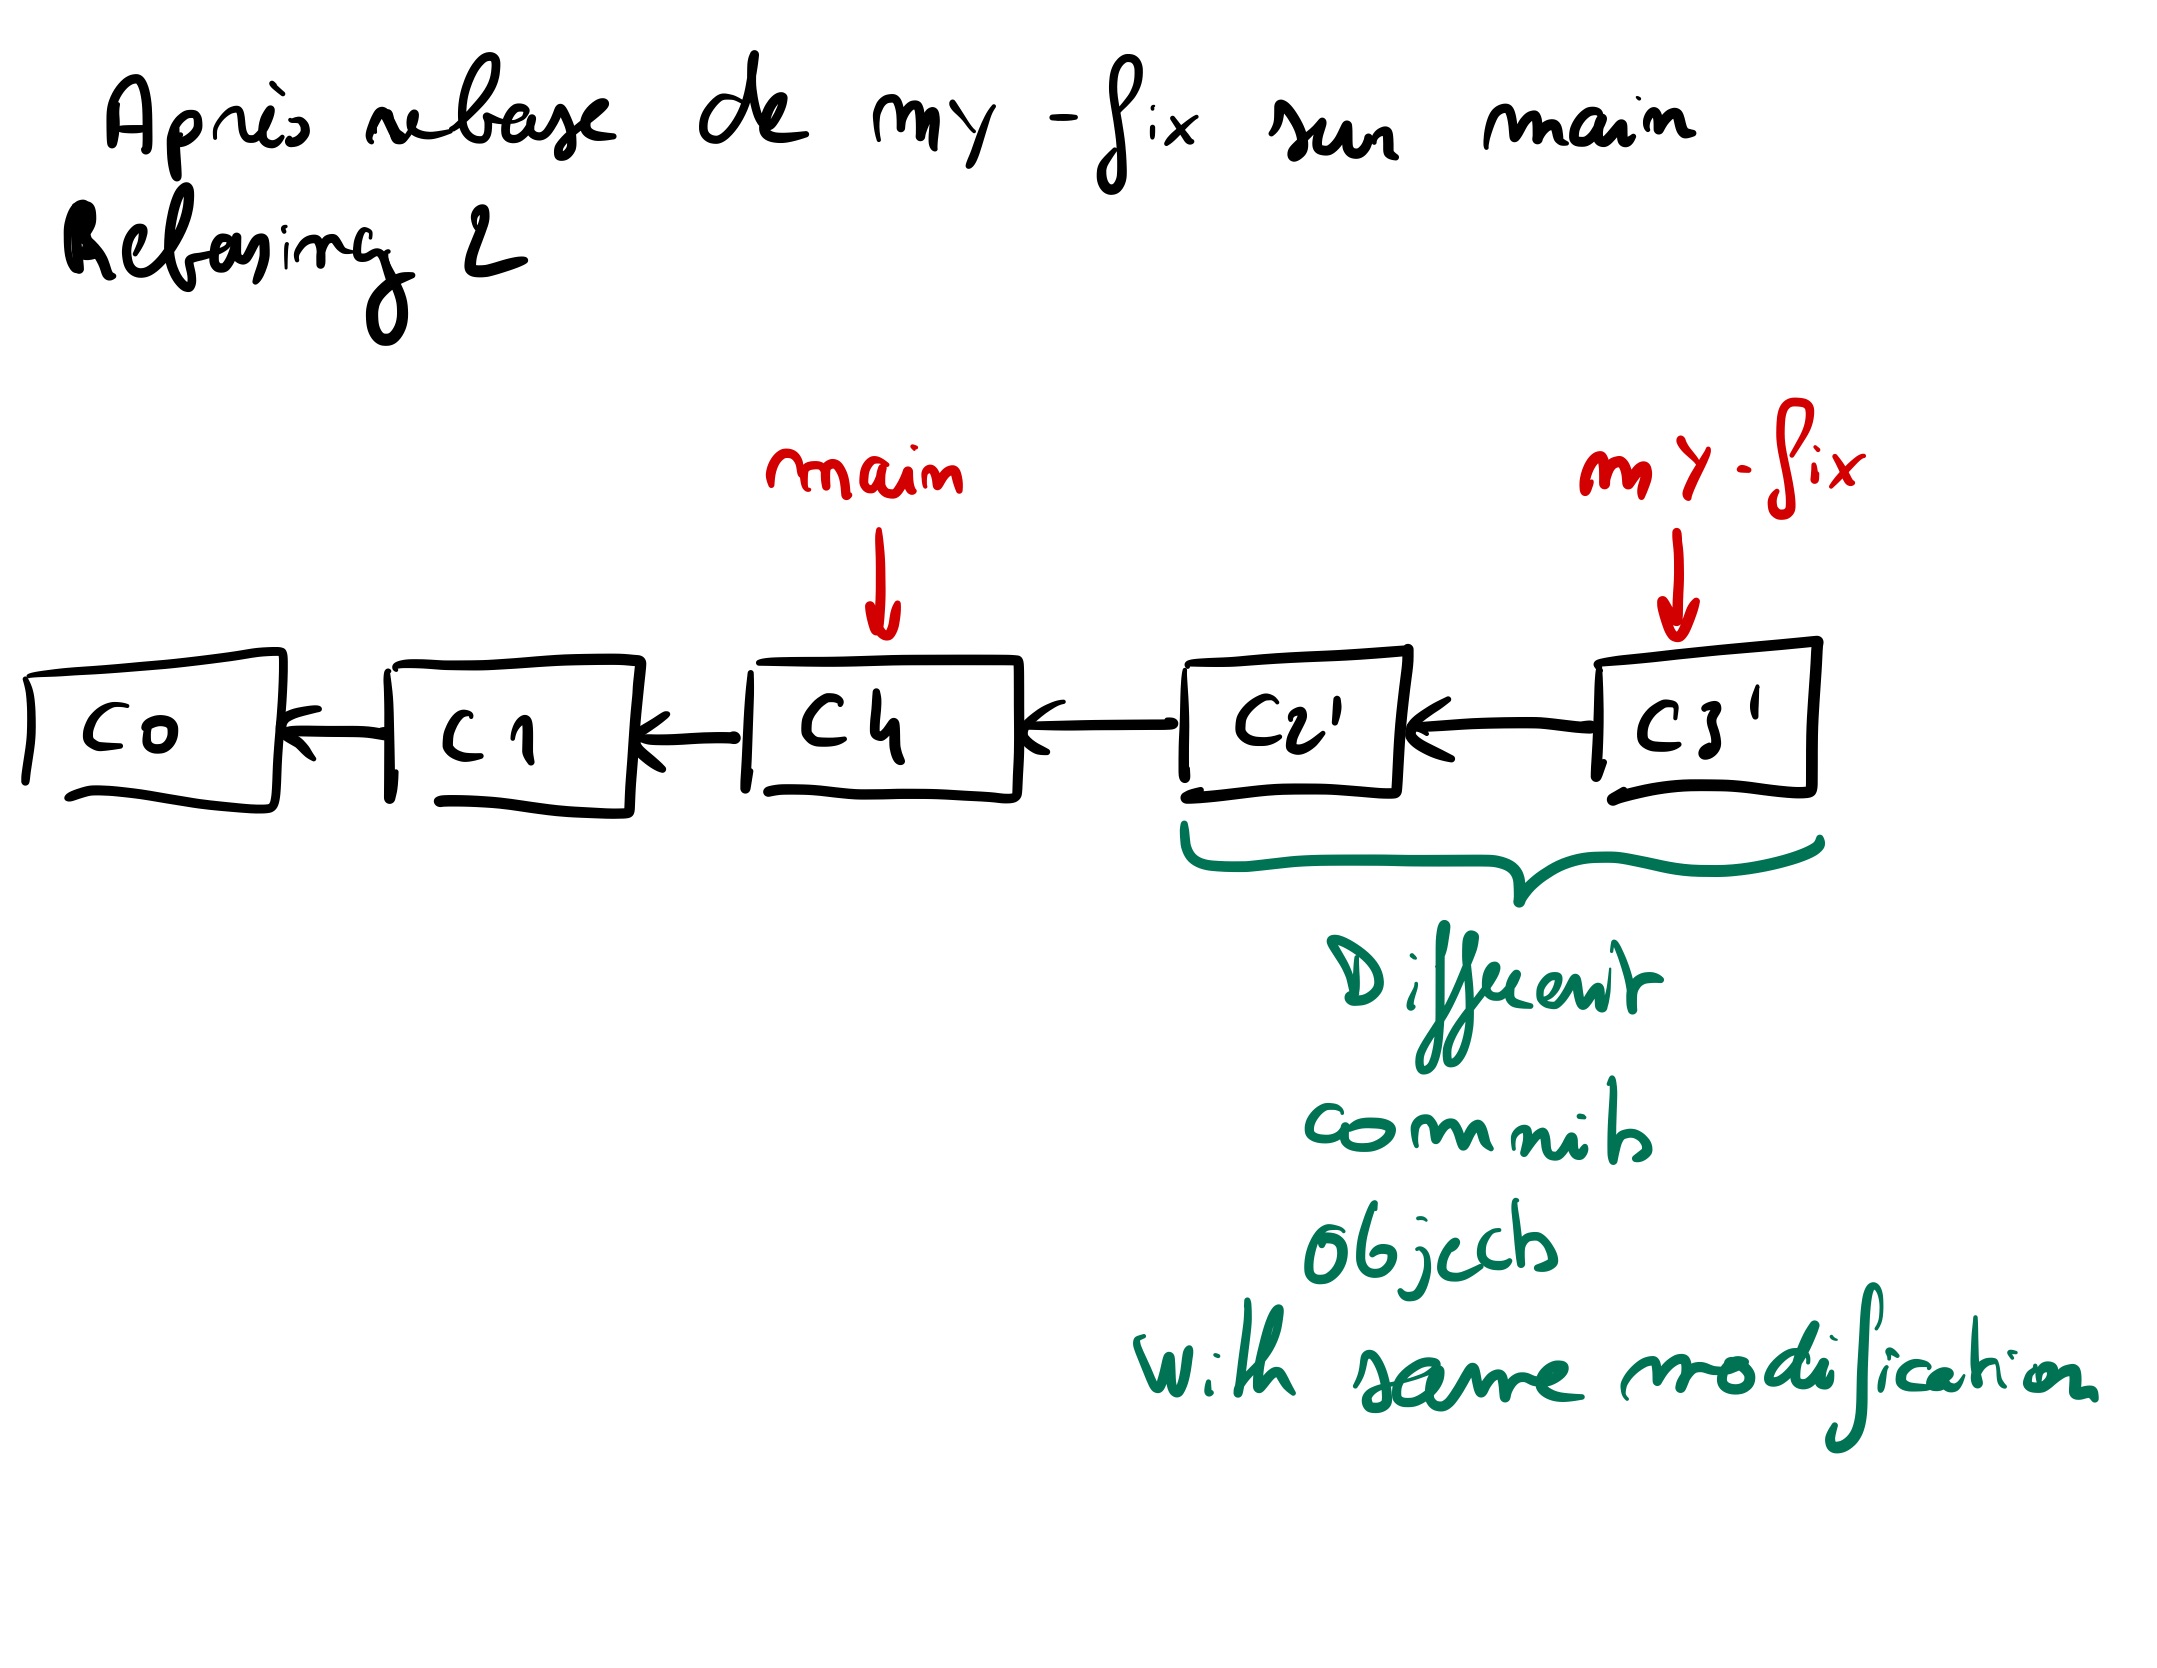 Après rebase de my-fix sur main
Rebasing 2
main
my-fix
C0
C1
C4
C2'
C3'
Different
commits
objects
with same modification